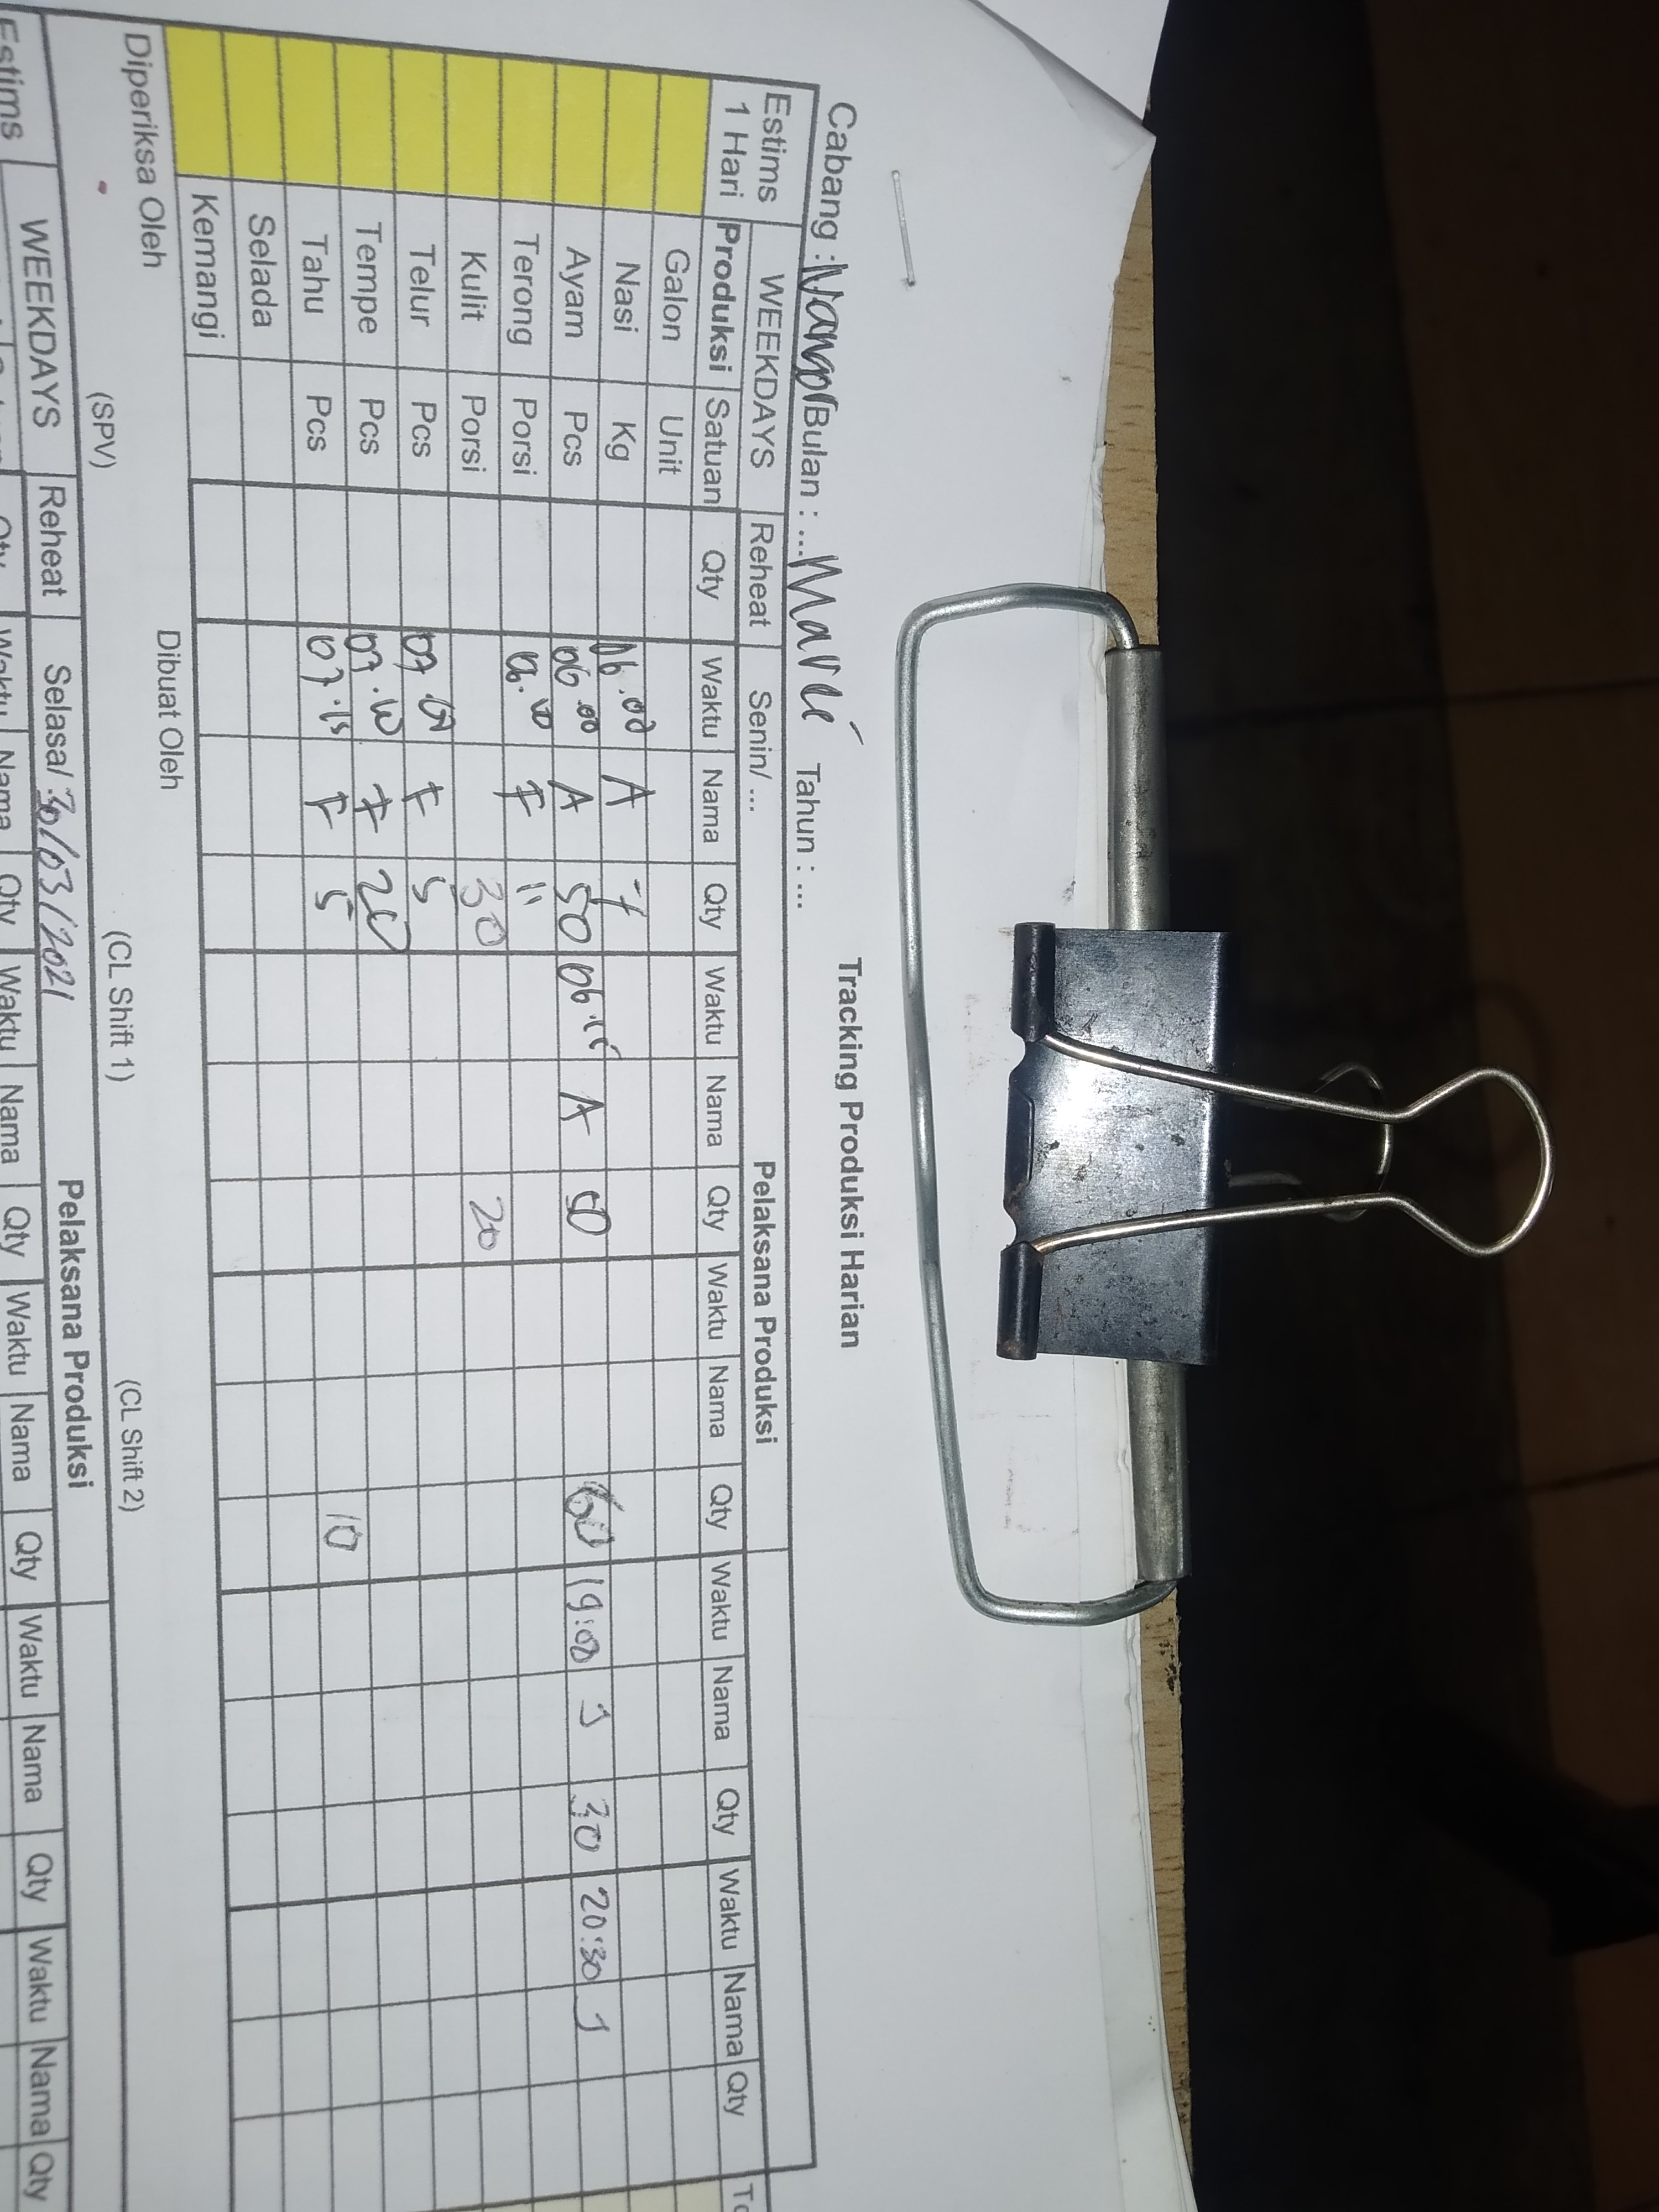 Tracking Produksi Harian
Cabang : Bulan : ... Maret Tahun : ...
Estims WEEKDAYS Reheat Senin/ ... Pelaksana Produksi
1 Hari Produksi Satuan Qty Waktu Nama Qty Waktu Nama Qty Waktu Nama Qty Waktu Nama Qty Waktu Nama Qty
Galon Unit
Nasi Kg 06.00 A 7
Ayam Pcs 06.00 A 50 A 50 60 19:00 J 30 20:30 J
Terong Porsi F 11
Kulit Porsi 30 20
Telur Pcs F 5
Tempe Pcs 07.10 F 20
Tahu Pcs 07.15 F 5 10
Selada
Kemangi
Diperiksa Oleh Dibuat Oleh
(SPV) (CL Shift 1) (CL Shift 2)
Estims WEEKDAYS Reheat Selasa/ 30/03/2021 Pelaksana Produksi
Qty Waktu Nama Qty Waktu Nama Qty Waktu Nama Qty Waktu Nama Qty Waktu Nama Qty